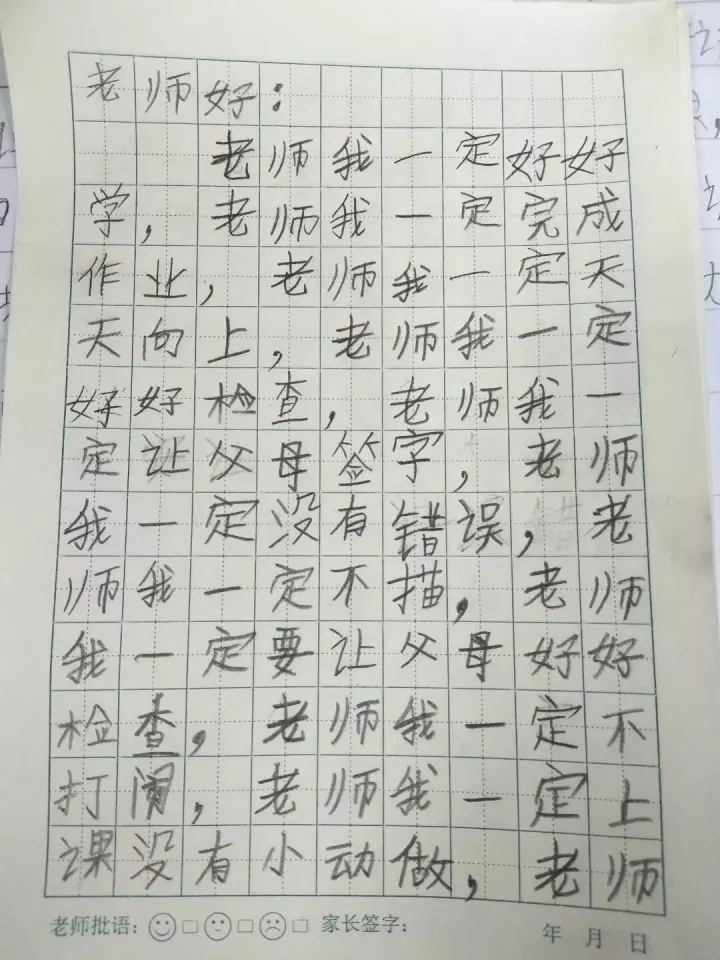 老师好：
老师我一定好好
学，老师我一定完成
作业，老师我一定天
天向上，老师我一定
好好检查，老师我一
定让父母签字，老师
我一定没有错误，老
师我一定不描，老师
我一定要让父母好好
检查，老师我一定不
打闹，老师我一定上
课没有小动做，老师
老师批语：☺□😐□☹□ 家长签字： 年 月 日